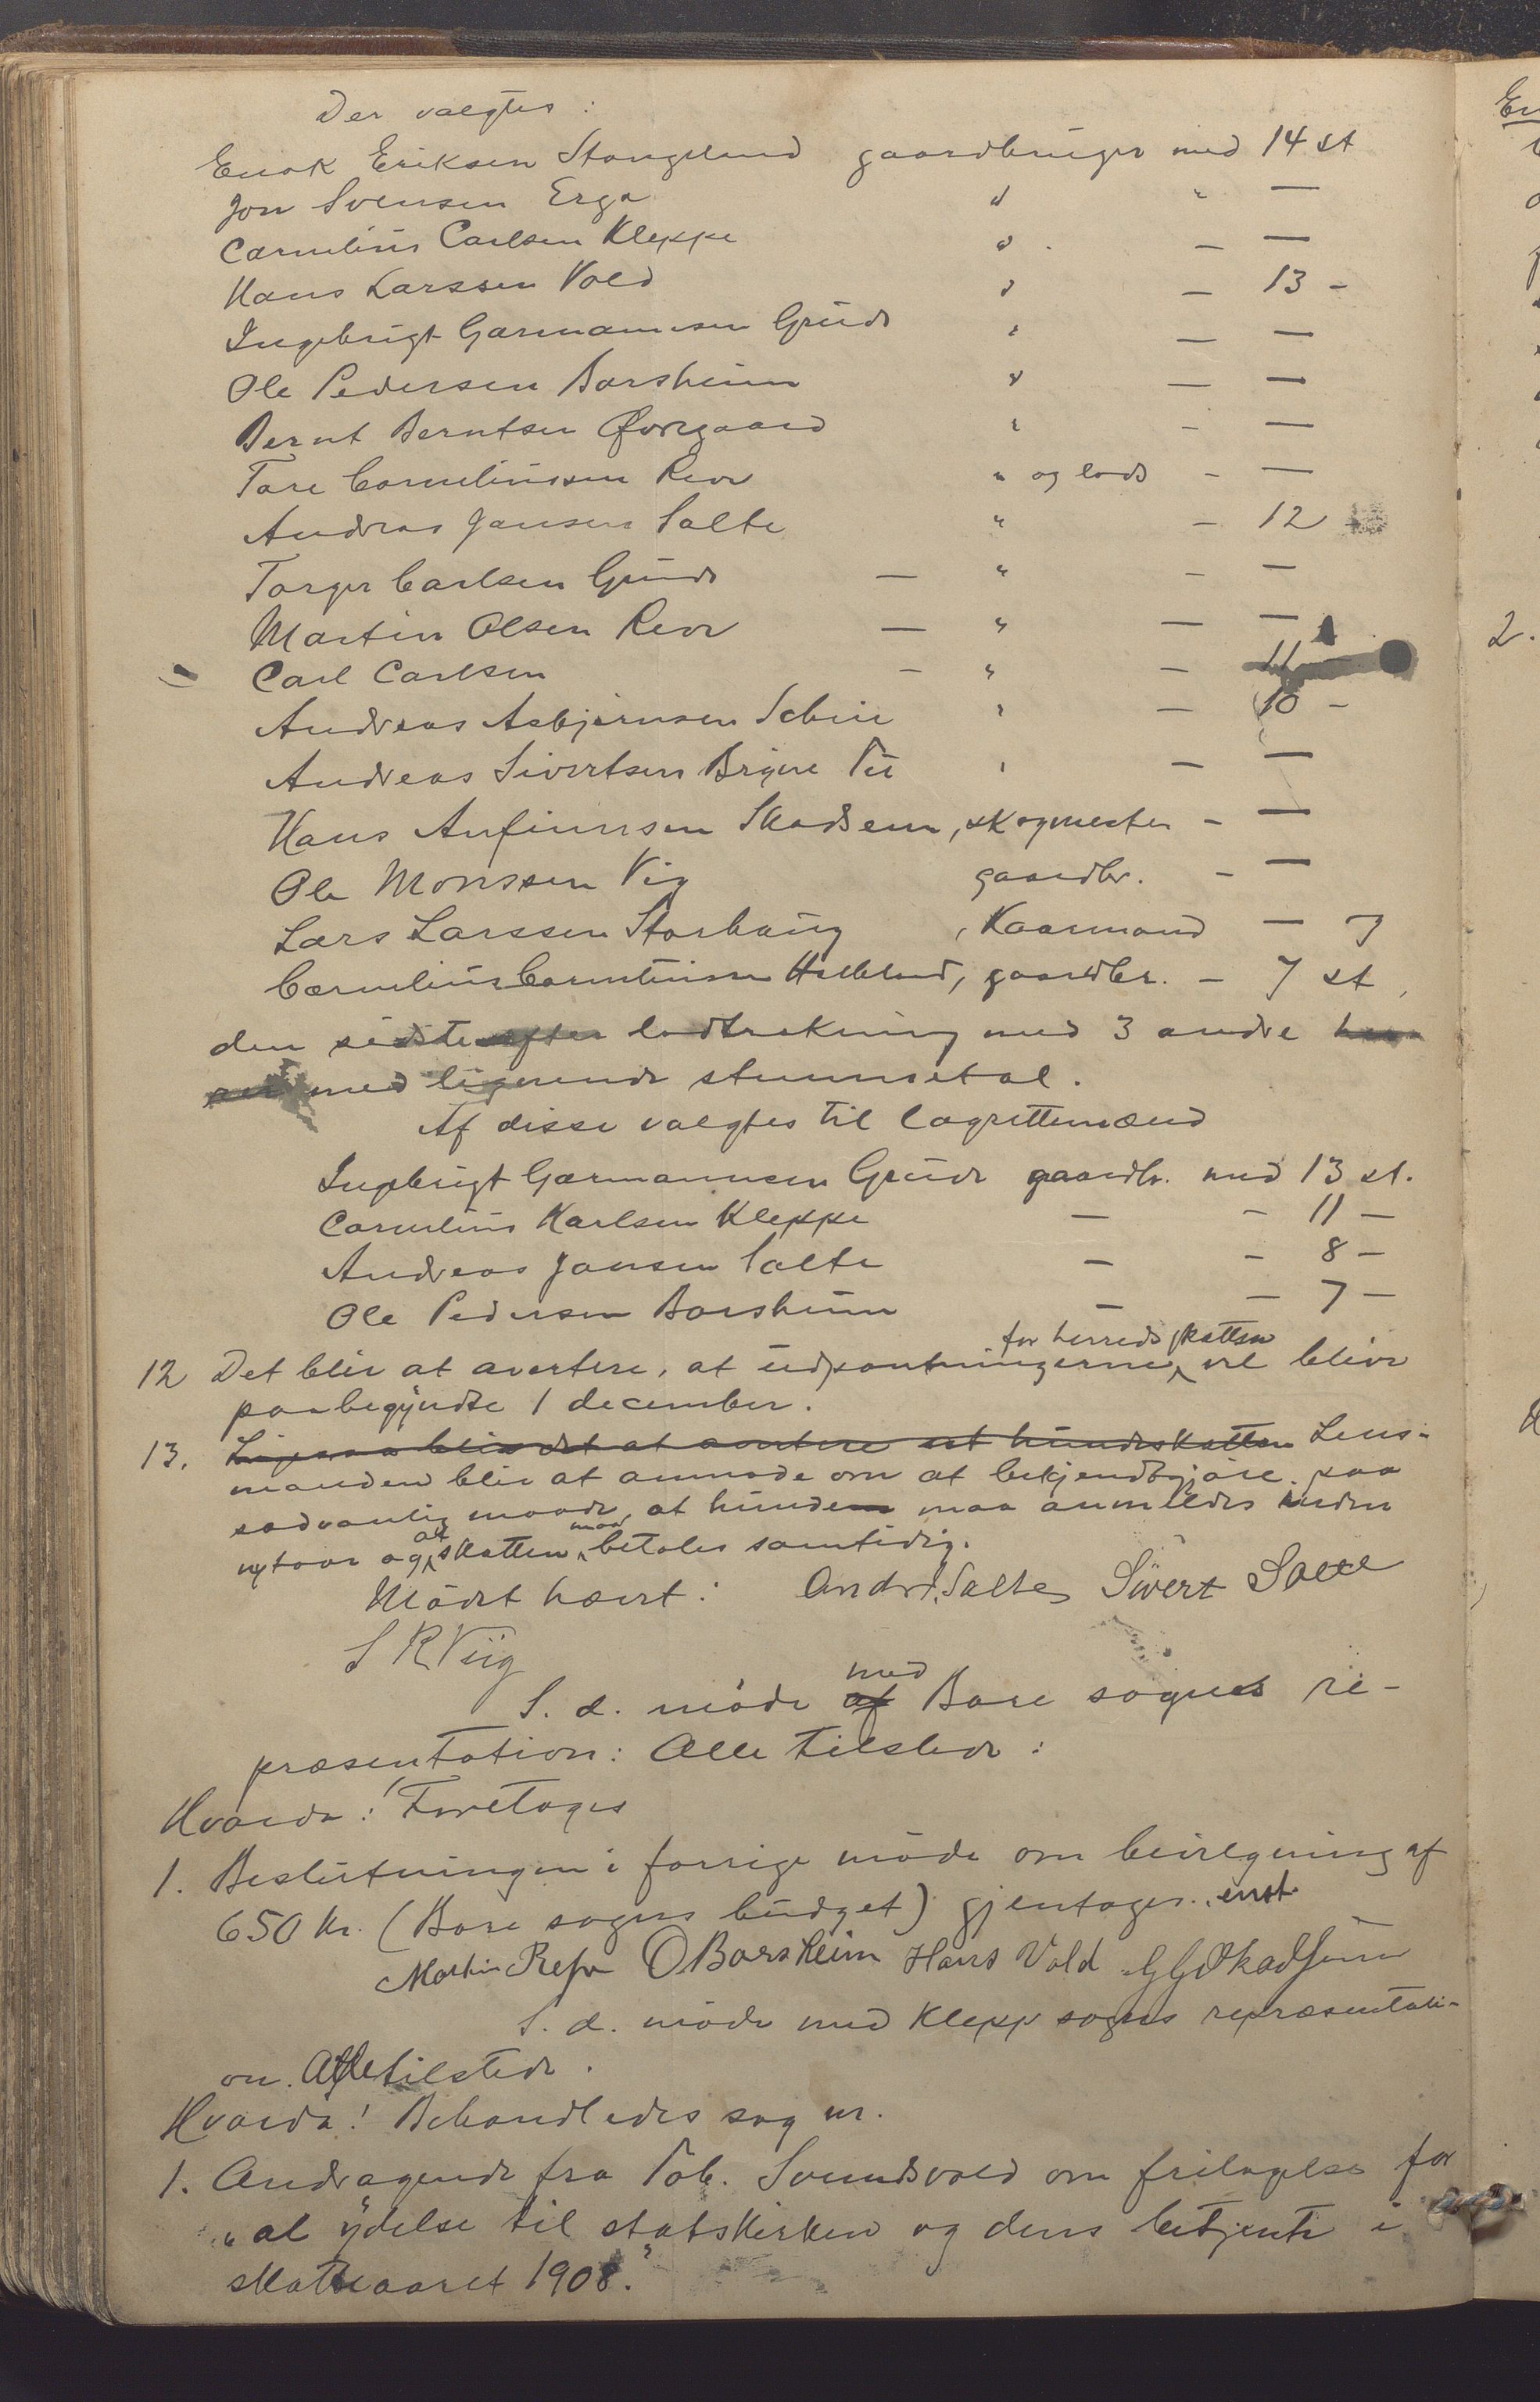 Der valgtes:
Enok Eriksen Stangeland gaardbruger med 14 st
Jon Svensen Erga " " —
Cornelius Carlsen Kleppe " . — —
Hans Larssen Vold " — 13 -
Ingebrigt Garmannsen Grude " — —
Ole Pedersen Borsheim " — —
Bernt Berntsen Øvregaard " - —
Tore Corneliussen Reve " og lods - —
Andreas Jansen Salte " - 12
Torger Carlsen Grude — " - —
Martin Olsen Reve — " — —
Carl Carlsen - " — 11 -
Andreas Asbjørnsen " — 10 -
Andreas Sivertsen Bryne " — —
Hans Anfinnsen Skadsem, skogmester - —
Ole Monssen Vig gaardbr. - —
Lars Larssen Storhaug, Kaarmand — 7
Cornelius Corneliussen, gaardbr. - 7 st,
den sidste efter lodtrekning med 3 andre
med lignende stemmetal.
Af disse valgtes til lagrettemænd
Ingebrigt Garmannsen Grude gaardbr. med 13 st.
Cornelius Karlsen Kleppe — - 11 —
Andreas Jansen Salte — - 8 —
Ole Pedersen Borsheim — — 7 —
for herredsskatten
12 Det blir at avertere, at udpantningerne vil blive
paabegyndte 1 december.
13. Ligesaa blir det at avertere at hundeskatten Lens-
manden blir at anmode om at bekjendtgjøre paa
sedvanlig maade, at hunde maa anmeldes inden
nytaar og at skatten maa betales samtidig.
Mødet hævt: Andr. J. Salte Sivert Salte
S R Viig
S. d. møde af med Bore sogns re-
præsentation: Alle tilstede:
Hvorda: Foretoges
1. Beslutningen i forrige møde om bevilgning af
650 kr. (Bore sogns budget) gjentoges. enst.
Martin Refve O Borsheim Hans Vold G G Skadsem
S. d. møde med Klepp sogns repræsentati-
on. Alle tilstede.
Hvorda! Behandledes sag nr.
1. Andragende fra Tob. Sunndsvold om fritagelse for
"al ydelse til statskirken og dens betjente i
skatteaaret 1908."
Er
2.